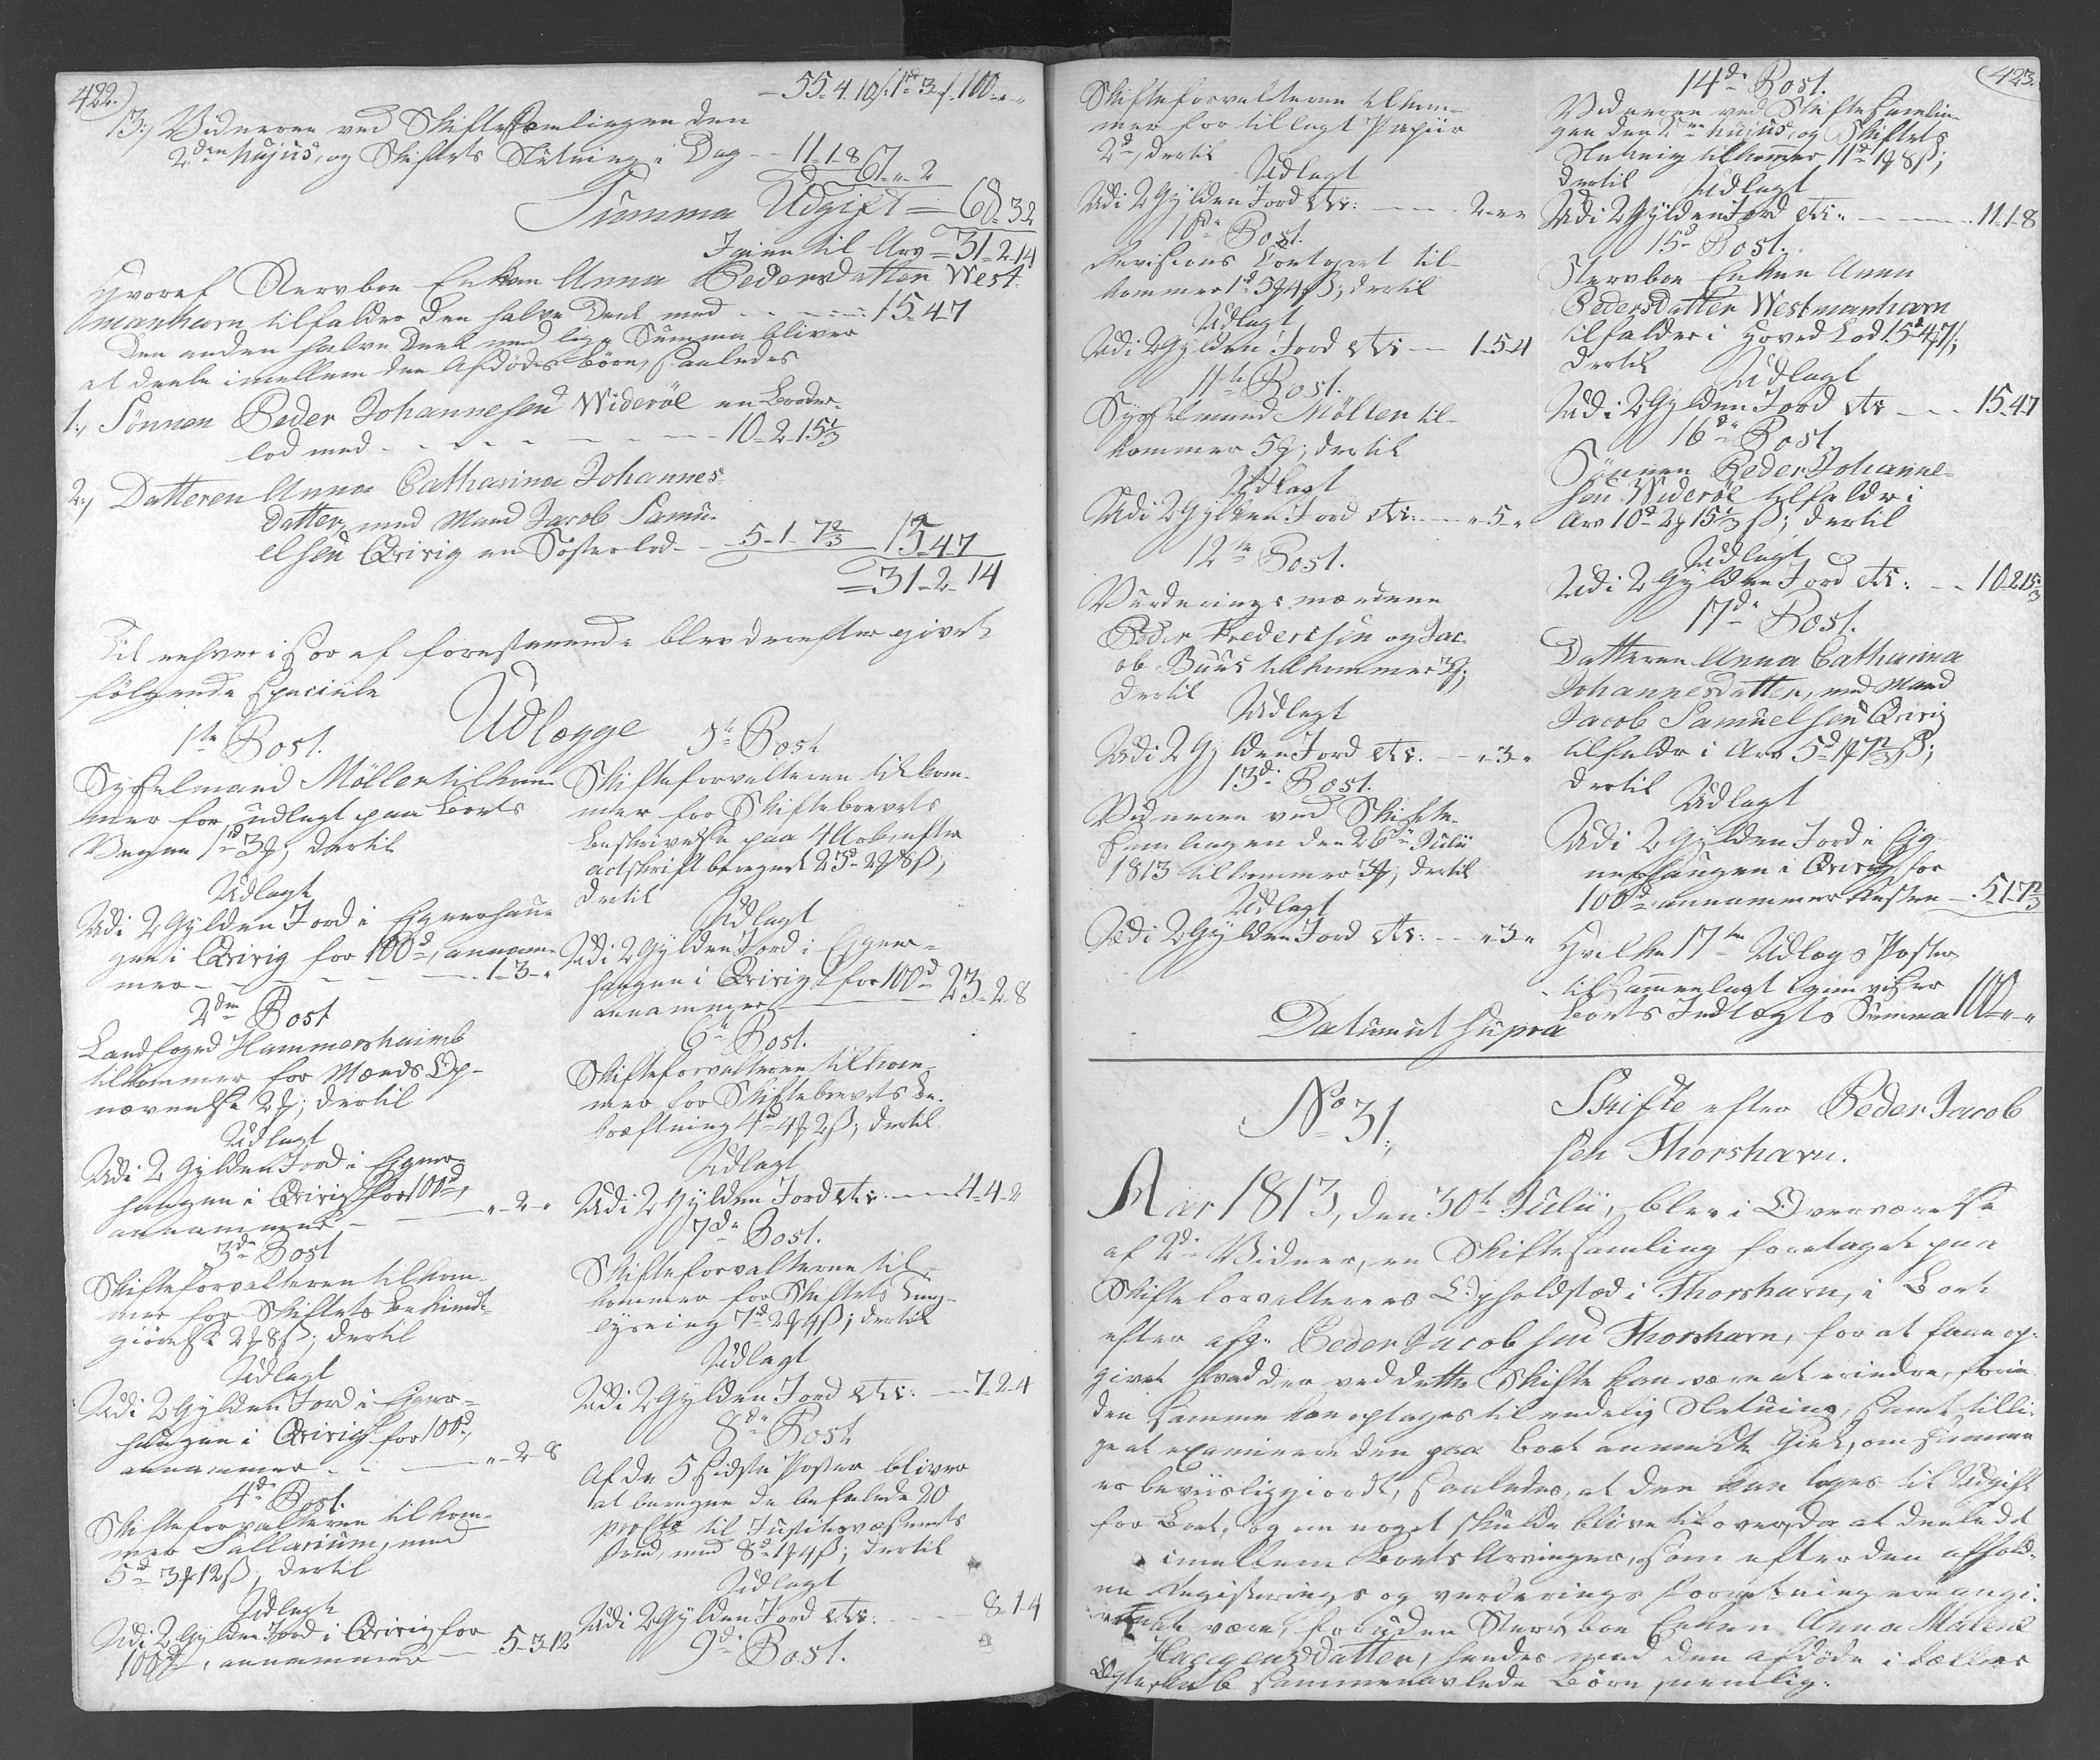 422.)
- 55-4.10/1d 3/ 100-"-"
13., Vidnerne ved Skiftesamlingen den
2den hujus, og Skiftets Slutning i Dag -- 11-1-8
67-"-2
Summa Udgift = 68-3-2
Igien til Arv = 31-2-14
Hvoraf Stervboe Enken Anna Pedersdatter West-
manhavn tilfalder den halve Deel med - - - 15-4-7
Den anden halve Deel med lige Summa bliver
at deele imellem den Afdødes Børn, saaledes
1., Sønnen Peder Johannesen Widerøe en Broder-
lod med - - - - - - 10-2-15 1/3
2., Datteren Anna Catharina Johannes-
datter, med Mand Jacob Samu-
elsen Qvivig en Søsterlod - - 5-1-7 2/3 15-4-7
= 31-2-14
Til enhver i sær af forestaaende blev derefter givet
følgende speciele
Udlægge
1te Post.
Sysselmand Möller tilkom-
mer for udlagt paa Boets
Vegne 1d 3f; dertil
Udlagt
Udi 2 Gylden Jord i Eignerhau-
gen i Qvivig for 100d, annam-
mer - - - - - 1-3-"
2den Post
Landfoged Hammershaimb
tilkommer for Mænds Op-
nævnelse 2f; dertil
Udlagt
Udi 2 Gylden Jord i Eigner-
haugen i Qvivig for 100d,
annammer - "-2-"
3de Post
Skifteforvalteren tilkom-
mer for Skiftets Bekiendt-
giørelse 2f 8ß; dertil
Udlagt
Udi 2 Gylden Jord i Eigner-
haugen i Qvivig for 100d,
annammer - - "-2-8
4de Post.
Skifteforvalteren tilkom-
mer Sallarium, med
5d 3f 12ß, dertil
Udlagt
Udi 2 Gylden Jord i Qvivig for
100d, annammer - 5-3-12
5te Post
Skifteforvalteren tilkom-
mer for Skiftebrevets
Beskrivelse paa 4 Ark, efter
actskrift beregnet 23d 2f 8ß;
dertil
Udlagt
Udi 2 Gylden Jord i Eigner-
haugen i Qvivig for 100d
annammer - 23-2-8
6te Post.
Skifteforvalteren tilkom-
mer for Skiftebrevets Be-
kræftning 4d 4f 2ß; dertil
Udlagt
Udi 2 Gylden Jord etc. - - 4-4-2
7de Post.
Skifteforvalteren til-
kommer for Skiftets Ting-
lysning 7d 2f 4ß; dertil
Udlagt
Udi 2 Gylden Jord etc. - 7-2-4
8de Post
Af de 5 sidste Poster bliver
at beregne de befalede 20
procto til Justitsvæsenets
Fond, med 8d 1f 4ß; dertil
Udlagt
Udi 2 Gylden Jord etc. - - 8-1-4
9de Post.
Skifteforvalteren tilkom-
mer for tillagt Papiir
2d, dertil
Udlagt
Udi 2 Gylden Jord etc. - - 2-"-"
10de Post.
Revisions Contoiret til-
kommer 1d 5f 4ß; dertil
Udlagt
Udi 2 Gylden Jord etc. - 1-5-4
11te Post.
Sysselmand Möller til-
kommer 5f; dertil
Udlagt
Udi 2 Gylden Jord etc. - - "-5-"
12te Post.
Vurderingsmændene
Peder Frederichsen og Jac-
ob Buus tilkommer 3f;
dertil
Udlagt
Udi 2 Gylden Jord etc. - "-3-"
13de Post.
Vidnerne ved Skifte-
samlingen den 26de Julii
1813 tilkommer 3f; dertil
Udlagt
Udi 2 Gylden Jord etc. - - "-3-"
Datum ut supra
(423.
14de Post.
Vidnerne ved Skiftesamlin-
gen den 2den hujus, og Skiftets
Slutning tilkommer 11d 1f 8ß;
dertil Udlagt
Udi 2 Gylden Jord etc. - - 11-1-8
15de Post.
Stervboe Enken Anna
Pedersdatter Westmanhavn
tilfalder i Hoved Lod 15d 4f 7ß;
dertil Udlagt
Udi 2 Gylden Jord etc. - - 15-4-7
16de Post
Sønnen Peder Johanne-
sen Widerøe tilfalder i
Arv 10d 2f 15 1/3 ß; dertil
Udlagt
Udi 2 Gylden Jord etc. - - 10-2-15 1/3
17de Post.
Datteren Anna Catharina
Johannesdatter, med Mand
Jacob Samuelsen Qvivig
tilfalder i Arv 5d 1f 7 2/3 ß;
dertil Udlagt
Udi 2 Gylden Jord i Eig-
nerhaugen i Qvivig for
100d annammer Resten - 5-1-7 2/3
Hvilke 17ten Udlægs Poster
tilsammenlagt igienviser
Boets Indtægts Summa 100-"-"
No 31.,
Skifte efter Peder Jacob
sen Thorshavn.
Aar 1813, den 30te Julii, blev i Overværelse
af 2de Vidner, en Skiftesamling foretaget paa
Skifteforvalterens Opholdstæd i Thorshavn, i Boet
efter afg. Peder Jacobsen Thorshavn, for at faae op-
givet hvad der ved dette Skifte kan være at erindre, forin-
den samme kan optages til endelig Slutning, samt tilli-
ge at examinere den paa Boet anmeldte Giæld, om samme
er beviisliggiordt, saaledes, at den kan tages til Udgift
for Boet, og om noget skulde blive tilovers, da at deele det
imellem Boets Arvinger, som efter den afhold-
ne Registerings og Vurderings Forretning ere angi-
vet at være, foruden Stervboe Enken Anna Malene
Haagensdatter, hendes med den afdøde i fælles
Ægteskab sammenavlede Børn, nemlig: